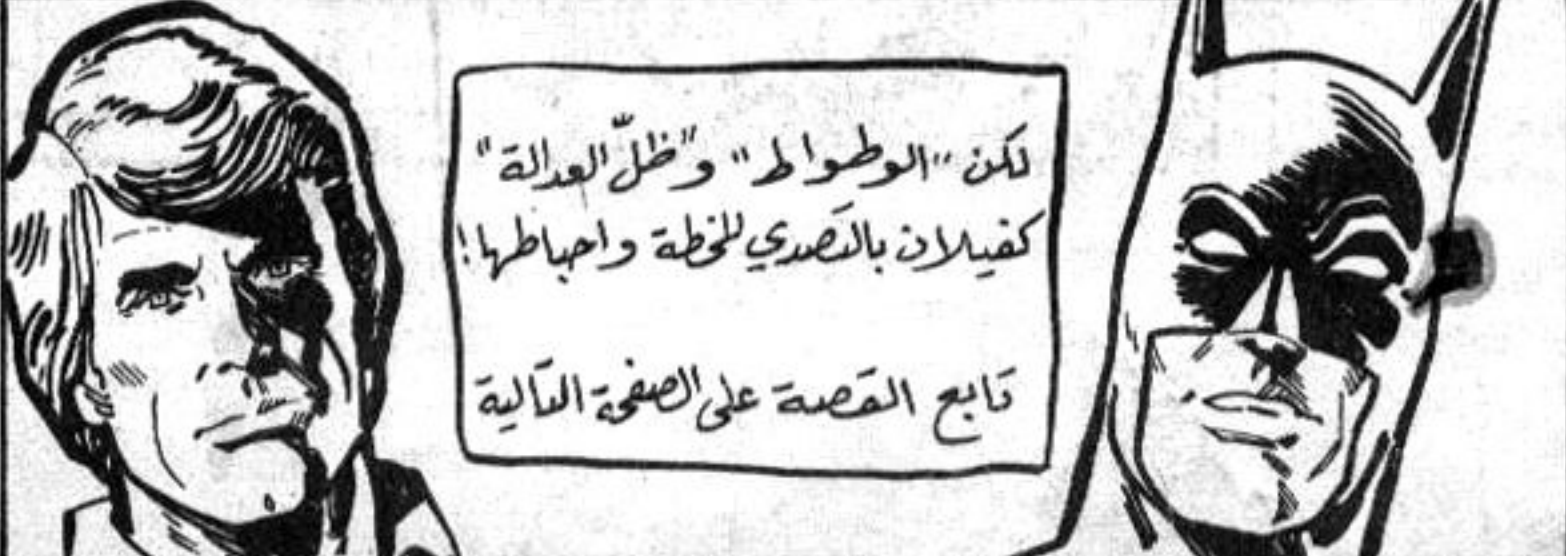 لكن "الوطواط" و"ظلّ العدالة"
كفيلان بالتصدي للخطة واحباطها!
تابع القصة على الصفحة التالية